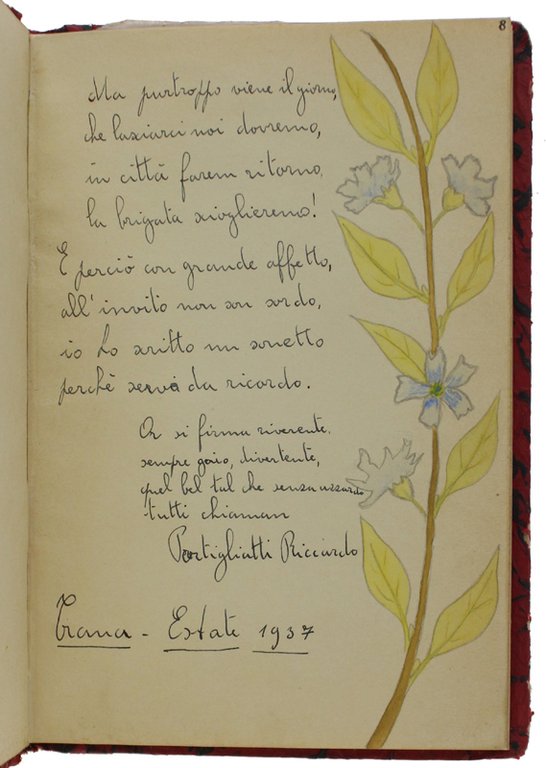 8
Ma purtroppo viene il giorno,
che lasciarci noi dovremo,
in città farem ritorno,
la brigata scioglieremo!
E perciò con grande affetto,
all'invito non son sordo,
io ho scritto un sonetto
perchè servi da ricordo.
Or si firma riverente,
sempre gaio, divertente,
quel bel tal che senza azzardo
tutti chiaman
Portigliatti Riccardo
Trana - Estate 1937